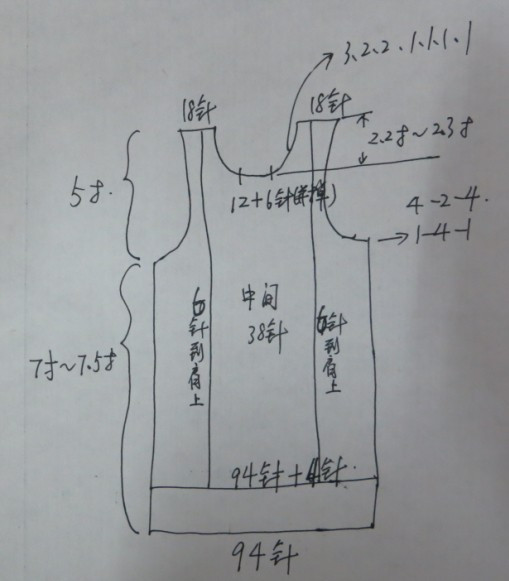 3.2.2.1.1.1.1
18针
18针
2.2寸~2.3寸
5寸.
12+6针(并掉)
4-2-4.
1-4-1
6针到肩上
中间
38针
6针到肩上
7寸~7.5寸
94针+4针.
94针